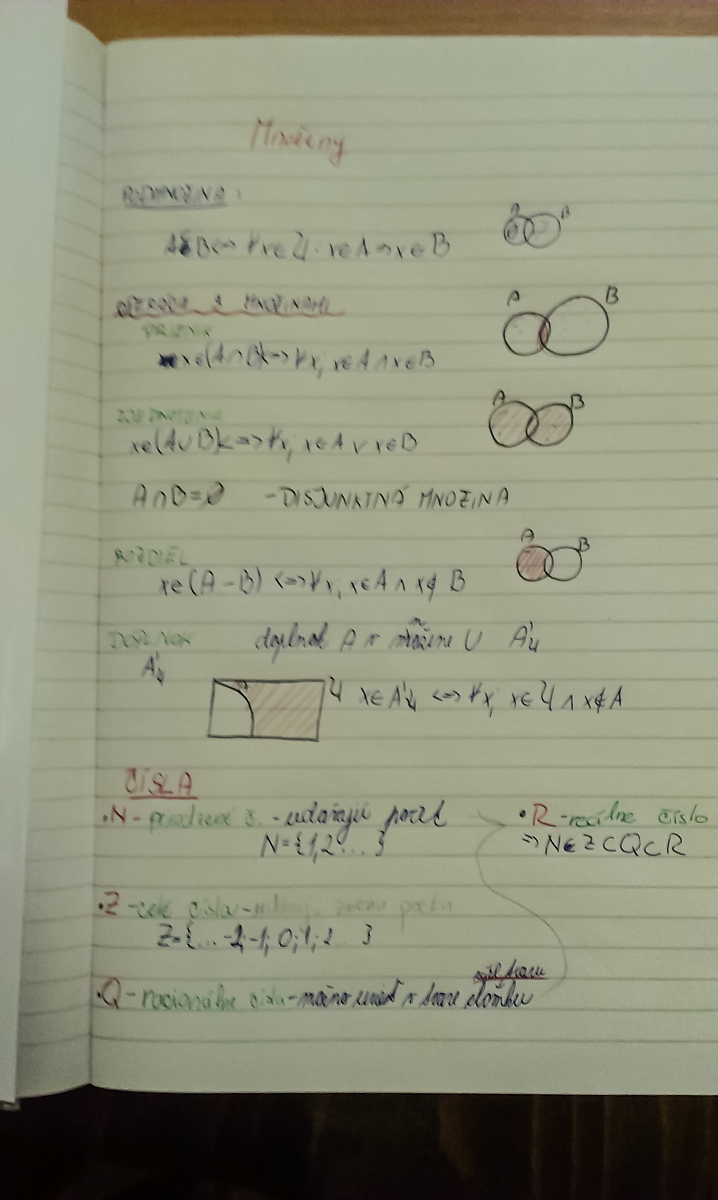 Množiny
PODMNOŽINA:
A⊂B<=> ∀x∈U: x∈A => x∈B
A B
OPERÁCIE S MNOŽINAMI
A B
PRIENIK
x∈(A∩B)<=>∀x; x∈A ∧ x∈B
ZJEDNOTENIE
A B
x∈(A∪B)<=>∀x; x∈A ∨ x∈B
A∩B=∅ -DISJUNKTNÁ MNOŽINA
ROZDIEL
A B
x∈(A-B) <=>∀x; x∈A ∧ x∉B
DOPLNOK doplnok A v množine U A'U
A'U
U x∈A'U <=>∀x; x∈U ∧ x∉A
ČÍSLA
•N-prirodzené č. -udávajú počet
N={1,2...}
•R-reálne číslo
=> N∈Z⊂Q⊂R
•Z-celé čísla- zmenu počtu
Z={...-2;-1;0;1;2 }
•Q-racionálne čísla-možno v tvare zlomku